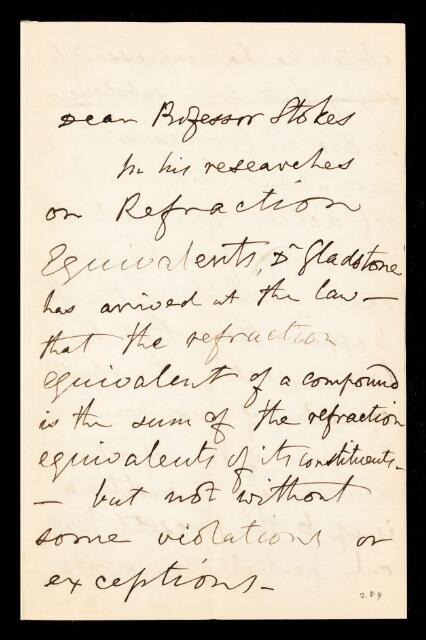 Dear Professor Stokes
In his researches
on Refraction
Equivalents, Dr Gladstone
has arrived at the law —
that the refraction
equivalent of a compound
is the sum of the refraction
equivalents of its constituents —
— but not without
some violations or
exceptions —
289